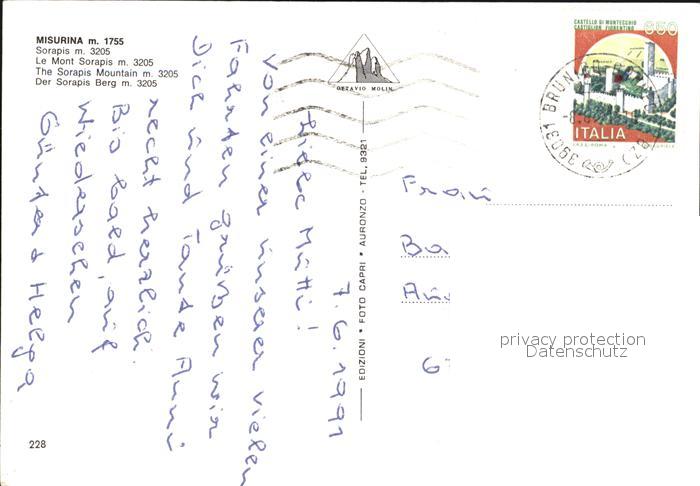 MISURINA m. 1755
Sorapis m. 3205
Le Mont Sorapis m. 3205
The Sorapis Mountain m. 3205
Der Sorapis Berg m. 3205
OTTAVIO MOLIN
CASTELLO DI MONTECCHIO
CASTIGLION FIORENTINO
650
ITALIA
39031 BRUN (BZ)
7.6.1991
Liebe Mutti!
Von einer unserer vielen
Fahrten grüßen wir
Dich und Tante Anni
recht herzlich.
Bis bald, auf
Wiedersehen
Günter & Helga
EDIZIONI • FOTO CAPRI • AURONZO - TEL. 9321
Frau
Ba
6
privacy protection
Datenschutz
228